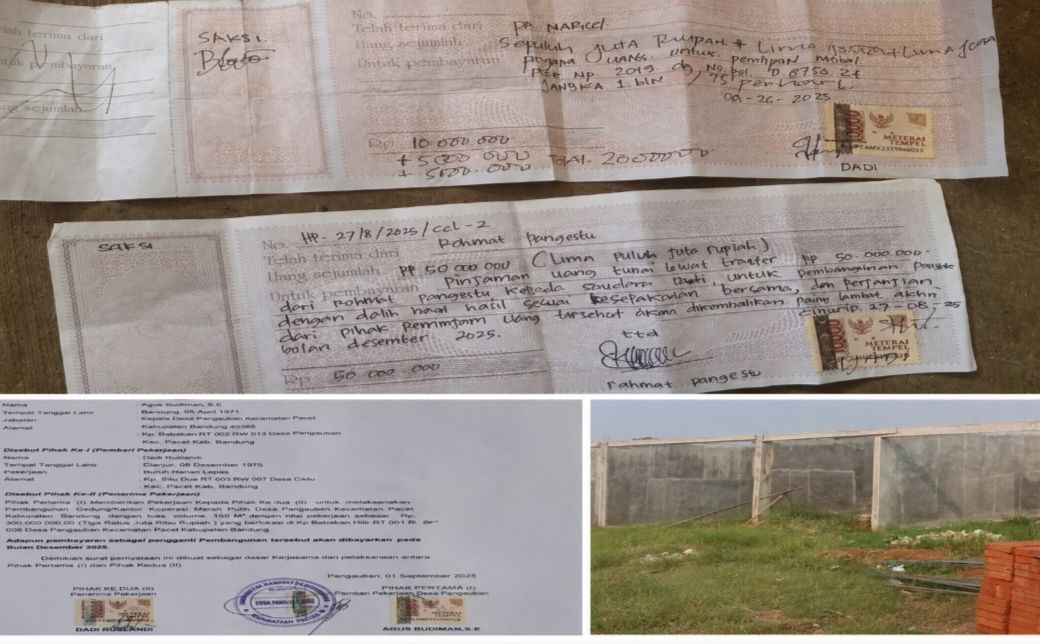 elah terima dari
ntuk pembayaran
ang sejumlah
SAKSI.
No.
Telah terima dari PA. NARICCL
Uang sejumlah Sepuluh Juta Rupiah + Lima Juta + Lima Juta
Untuk pembayaran pinjam Uang. untuk penitipan mobil.
No. 2019. No. pol. D. 8750. Zt
JANGKA 1. bln
09-26-2025
Rp 10 000 000
+ 5 000 000
+ 5000.000 Total- 20000000
10000
METERAI
TEMPEL
DADI
SAKSI
No. HP- 27/8/2025/ccl-2
Telah terima dari Rohmat Pangestu
Uang sejumlah RP 50 000 000 (Lima puluh Juta rupiah)
Untuk pembayaran Pinjaman uang tunai lewat tranfer RP 50.000.000.
dari Rohmat Pangestu kepada saudara Dadi, untuk pembangunan
dengan dalih bagi hasil sesuai kesepakatan bersama, dan Perjanjian
dari pihak peminjam uang tersebut akan dikembalikan paling lambat akhir
bolan desember 2025.
27-08-25
ttd
Rp 50 000 000
Rahmat pangestu
10000
METERAI
TEMPEL
Nama : Agus Budiman, S.E
Tempat Tanggal Lahir : Bandung, 05 April 1971
Jabatan : Kepala Desa Pangauban Kecamatan Pacet
Kabupaten Bandung 40385
Alamat : Kp. Babakan RT 002 RW 013 Desa Pangauban
Kec. Pacet Kab. Bandung
Disebut Pihak Ke-I (Pemberi Pekerjaan)
Nama : Dadi Ruslandi
Tempat Tanggal Lahir : Cianjur, 08 Desember 1975
Pekerjaan : Buruh Harian Lepas
Alamat : Kp. Situ Dua RT 003 RW 007 Desa
Kec. Pacet Kab. Bandung
Disebut Pihak Ke-II (Penerima Pekerjaan)
Pihak Pertama (I) Memberikan Pekerjaan Kepada Pihak Ke dua (II) untuk melaksanakan
Pembangunan Gedung/Kantor Koperasi Merah Putih Desa Pangauban Kecamatan Pacet
Kabupaten Bandung dengan luas volume 150 M² dengan nilai pekerjaan sebesar Rp.
300.000.000,00 (Tiga Ratus Juta Ribu Rupiah) yang berlokasi di Kp Babakan Hilir RT 001 R
008 Desa Pangauban Kecamatan Pacet Kabupaten Bandung.
Adapun pembayaran sebagai pengganti Pembangunan tersebut akan dibayarkan pada
Bulan Desember 2025.
Demikian surat pernyataan ini dibuat sebagai dasar Kerjasama dan pelaksanaan antara
Pihak Pertama (I) dan Pihak Kedua (II).
Pangauban, 01 September 2025
PIHAK KE DUA (II)
Penerima Pekerjaan
PIHAK PERTAMA (I)
Pemberi Pekerjaan Desa Pangauban
METERAI
TEMPEL
METERAI
TEMPEL
DADI RUSLANDI
AGUS BUDIMAN, S.E